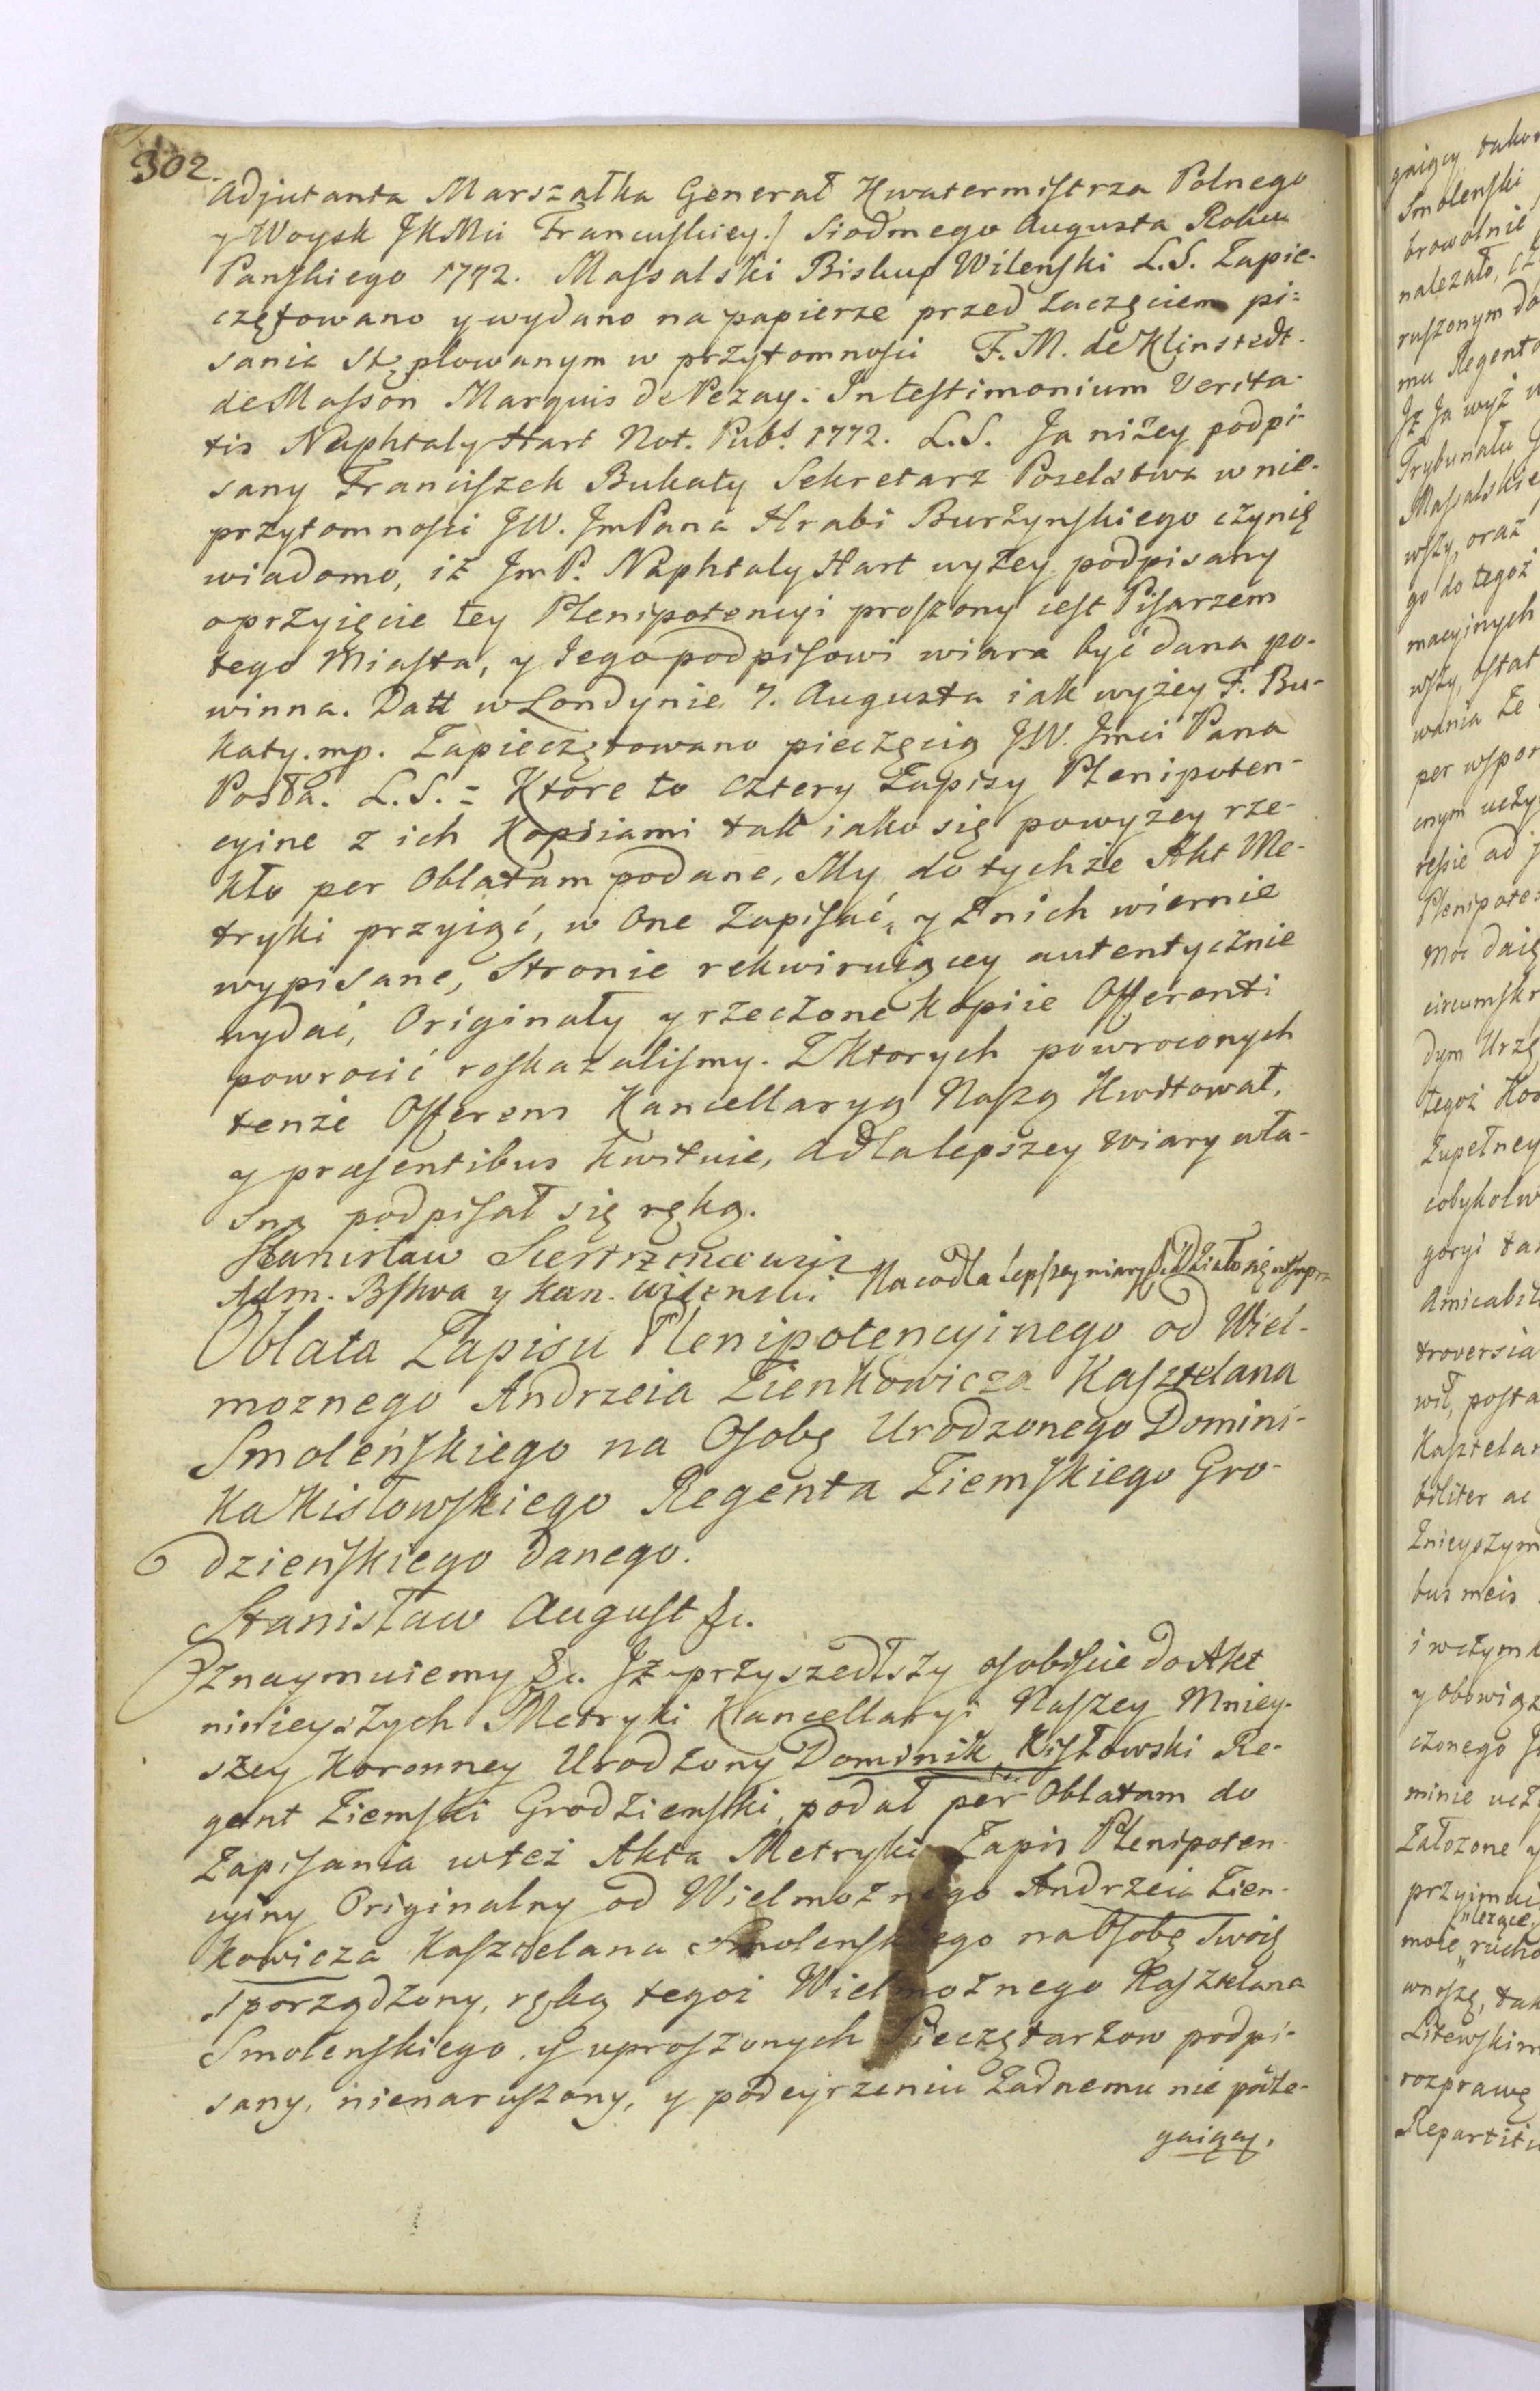 302.
Adjutanta Marszałka Generał Kwatermistrza Polnego
y Woysk JKMci Francuskiey./ Siodmego Augusta Roku
Panskiego 1772. Massalski Biskup Wilenski L.S. Zapie-
czętowano y wydano na papierze przed zaczęciem pi=
sania stęplowanym w przytomnosci F. M. de Klinstedt.
de Masson Marquis de Pezay. In testimonium Verita-
tis Naphtaly Hart Not. Pub.s 1772. L.S. Ja niżey podpi-
sany Franciszek Bukaty Sekretarz Poselstwa w nie-
przytomnosci JW. JmPana Hrabi Burzynskiego czynię
wiadomo, iż JmP. Naphtaly Hart wyżey podpisany
o przyięcie tey Plenipotencyi proszony iest Pisarzem
tego Miasta, y Iego podpisowi wiara być dana po-
winna. Datt w Londynie 7. Augusta iak wyżey F. Bu-
katy. mp. Zapieczętowano pieczęcią JW. Jmci Pana
Posła. L.S. = Ktore to cztery Zapisy Plenipoten-
cyine z ich Kopiiami tak iako się powyżey rze-
kło per Oblatam podane, My do tychże Akt Me-
tryki przyiąć, w One Zapisać, y z nich wiernie
wypisane, Stronie rekwiruiącey autentycznie
wydać, Originały y rzeczone Kopiie Offerenti
powrocić roskazalismy. Z Ktorych powroconych
tenże Offerens Kancellaryą Naszą Kwitował,
y præsentibus kwituie, a dla lepszey wiary wła-
sną podpisał się ręką.
Stanisław Siestrzencewicz
Adm. Bstwa y Kan. Wilenski Na co dla lepszey wiary &c. Działo się ut supr
Oblata Zapisu Plenipotencyinego od Wiel-
moznego Andrzeia Zienkowicza Kasztelana
Smoleńskiego na Osobę Urodzonego Domini-
ka Kisłowskiego Regenta Ziemskiego Gro-
dzieńskiego danego.
Stanisław August &c.
Oznaymuiemy &c. Jż przyszedłszy osobiscie do Akt
ninieyszych Metryki Kancellaryi Naszey Mniey-
szey Koronney Urodzony Dominik Kisłowski Re-
gent Ziemski Grodzienski, podał per Oblatam do
Zapisania w też Akta Metryki Zapis Plenipoten-
cyiny Originalny od Wielmożnego Andrzeia Zien-
kowicza Kasztelana Smolenskiego na Osobę Swoię
sporządzony, ręką tegoż Wielmożnego Kasztelana
Smolenskiego, y uproszonych Pieczętarzow podpi-
sany, nienaruszony, y podeyrzeniu żadnemu nie podle-
gaiący,
Smolenski
browolnie
należało,
ruszonym do
mu Regento
Jż Ja wyż w
Trybunału
Massalskie
wszy, oraz
go do tegoż
macyinych
wszy, ostat
wania że
per wspom
cnym uczy
ressie ad
Plenipoten
moc daię
circumskr
dym Urzę
tegoż
Zupełney
cobykolw
goryi ta
Amicabil
troversia
wił, posta
Kasztelan
biliter ac
Znieyszym
bus meis
i w czym k
y obowiąz
czonego
minie ucz
Założone y
przyimui
moie rucho
wnoszę, tak
Litewskim
rozprawę
Repartiti